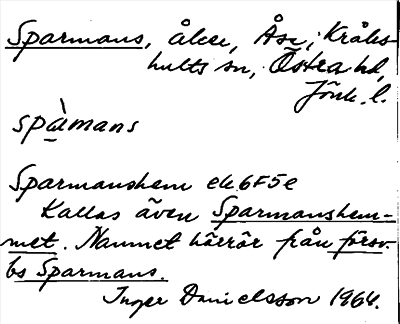 Sparmans, åker, Åse, Kråks-
hults sn, Östra hd,
Jönk. l.
spàmans
Sparmanshem ek. 6F5e
Kallas även Sparmanshem-
met. Namnet härrör från försv.
bs Sparmans.
Inger Danielsson 1964.